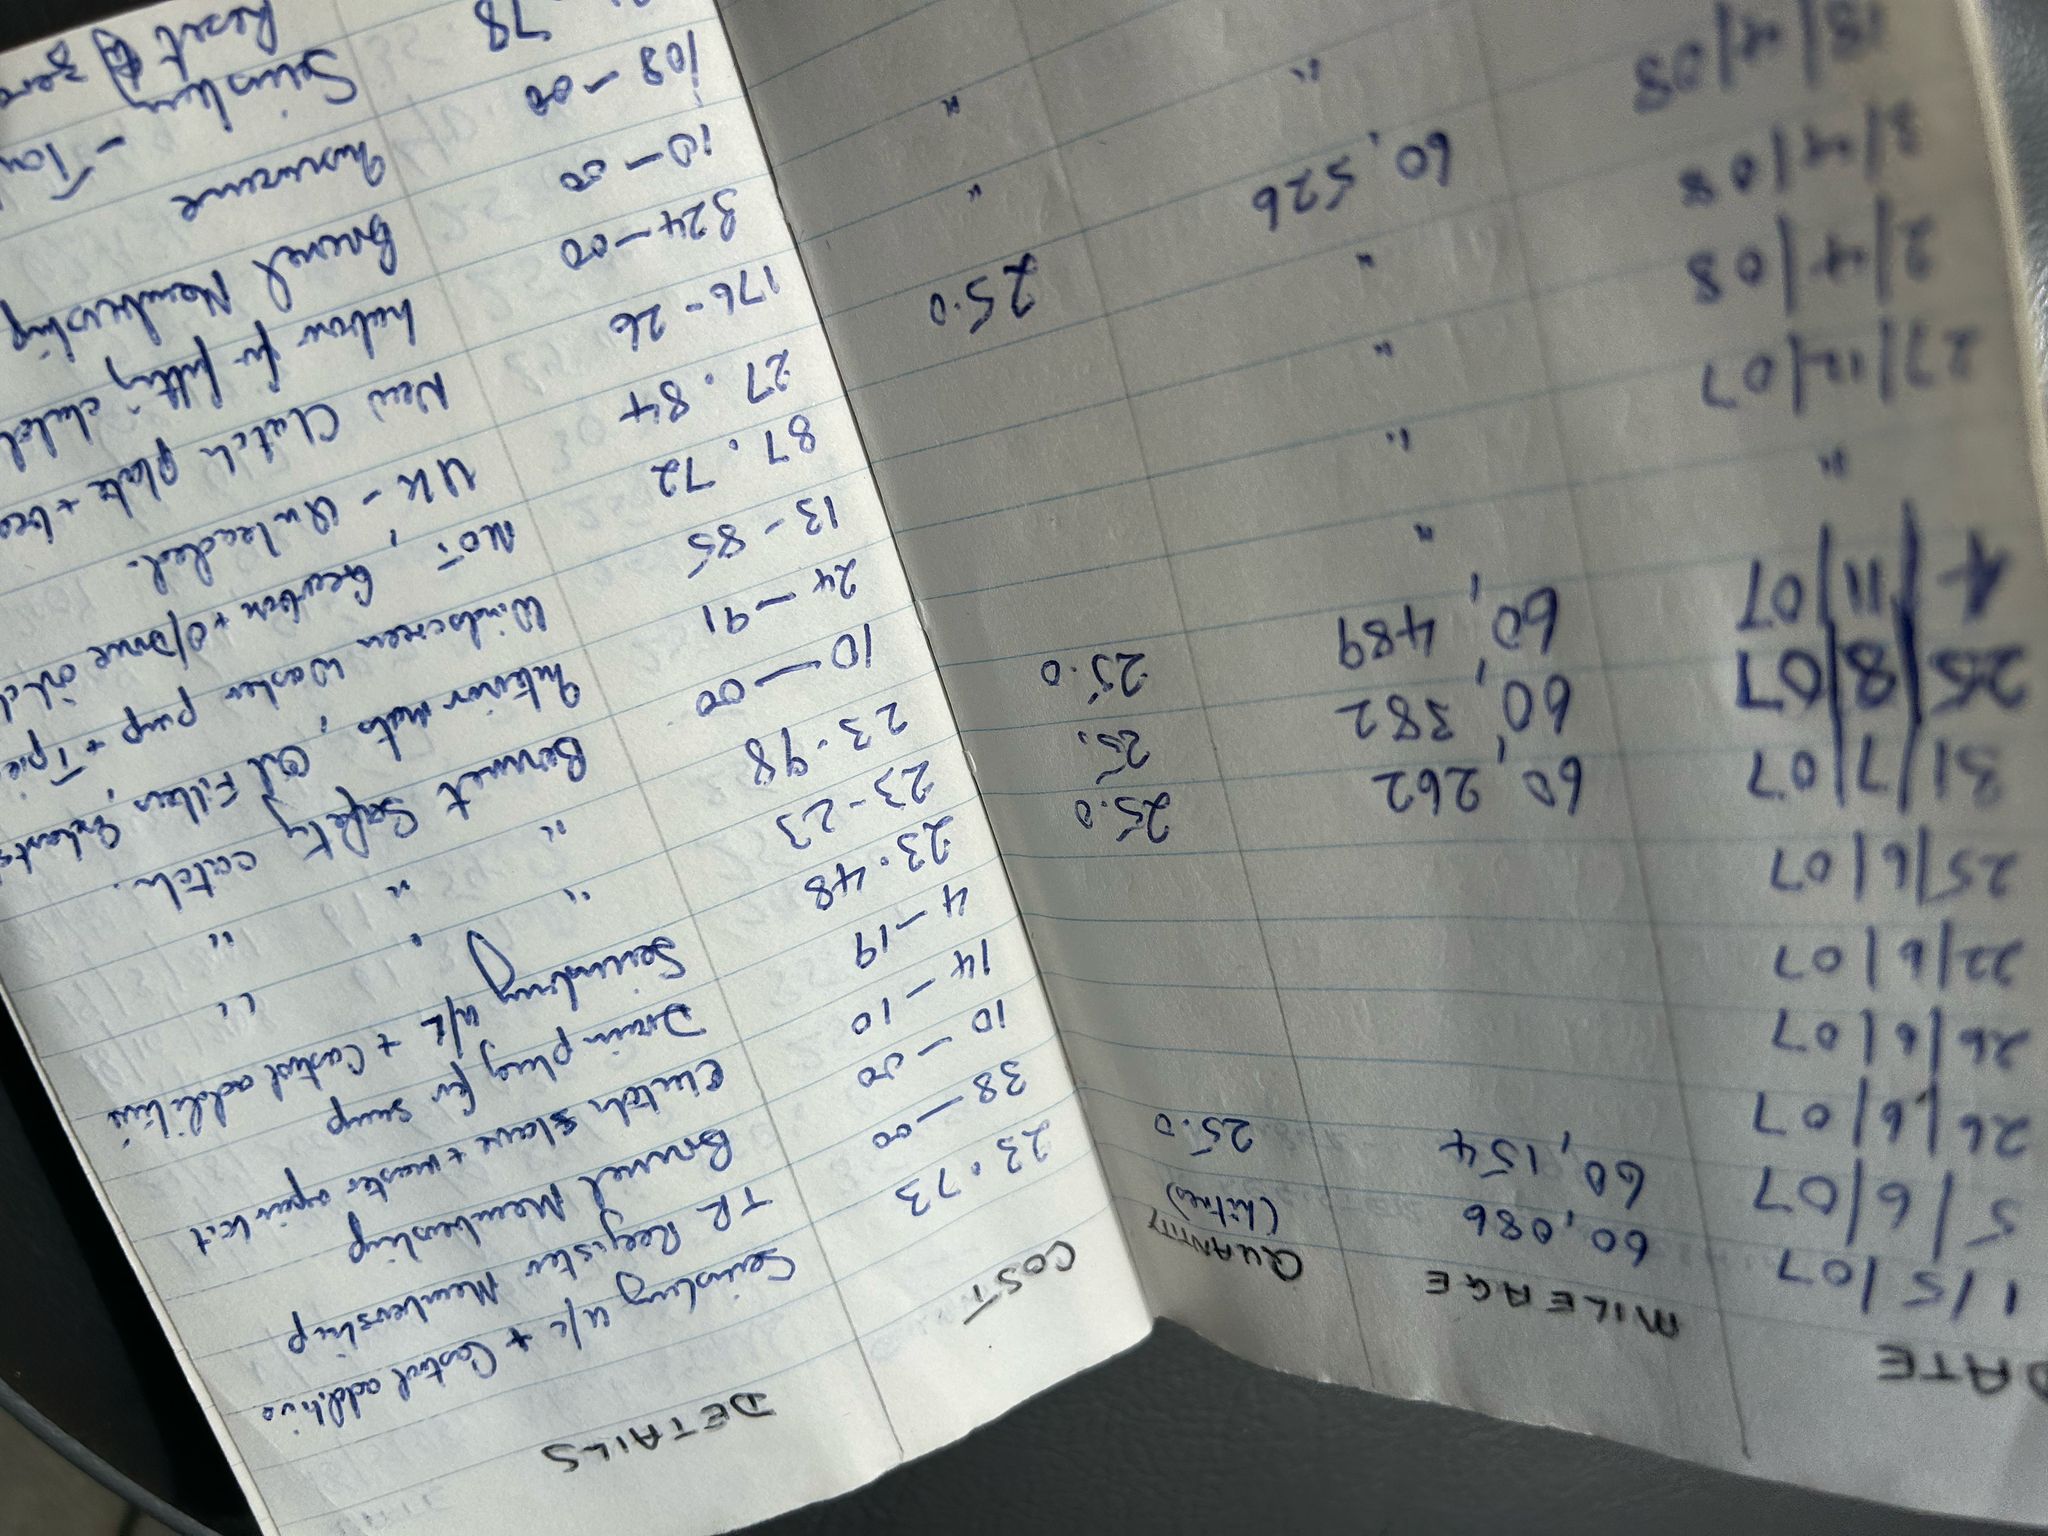 DATE MILEAGE QUANTITY
(Litres)
1/5/07 60,086 25.0
5/6/07 60,154
26/6/07
26/6/07
22/6/07
25/6/07
31/7/07 60,262 25.0
25/8/07 60,382 25.
4/11/07 60,489 25.0
" "
27/12/07 "
2/4/08 "
3/4/08 " 25.0
18/4/08 60,526 "
" "
COST DETAILS
23.73 Sainsbury u/l + Castrol additive
38-00 TR Register Membership
10-00 Brunel Membership
14-10 Clutch slave + master repair kit
4-19 Drain plug for sump
23.48 Sainsbury u/l + Castrol additive
23-23 " " "
23.98 " " "
10-00 Bonnet Safety catch.
24-91 Interior mats, Oil Filter,
13-85 Windscreen Washer pump +
87.72 MOT, Gearbox + O/Drive oil
27.84 UK - Unleaded.
176-26 New Clutch plate +
324-00 Labour for fitting clutch
10-00 Brunel Membership
108-00 Insurance
78 Sainsbury -
Reset to zero